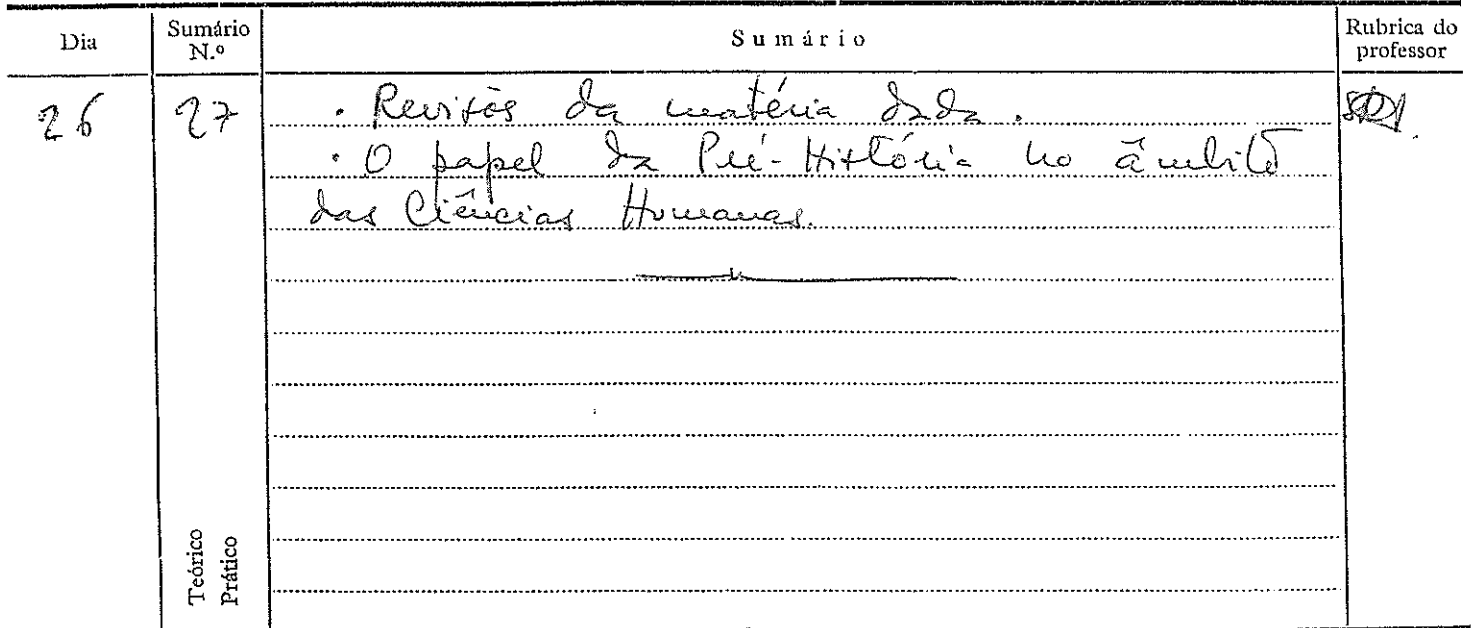 Dia Sumário N.º Sumário Rubrica do professor
26 27 . Revisões da matéria dada.
. O papel da Pré-História no âmbito
das Ciências Humanas.
Teórico
Prático